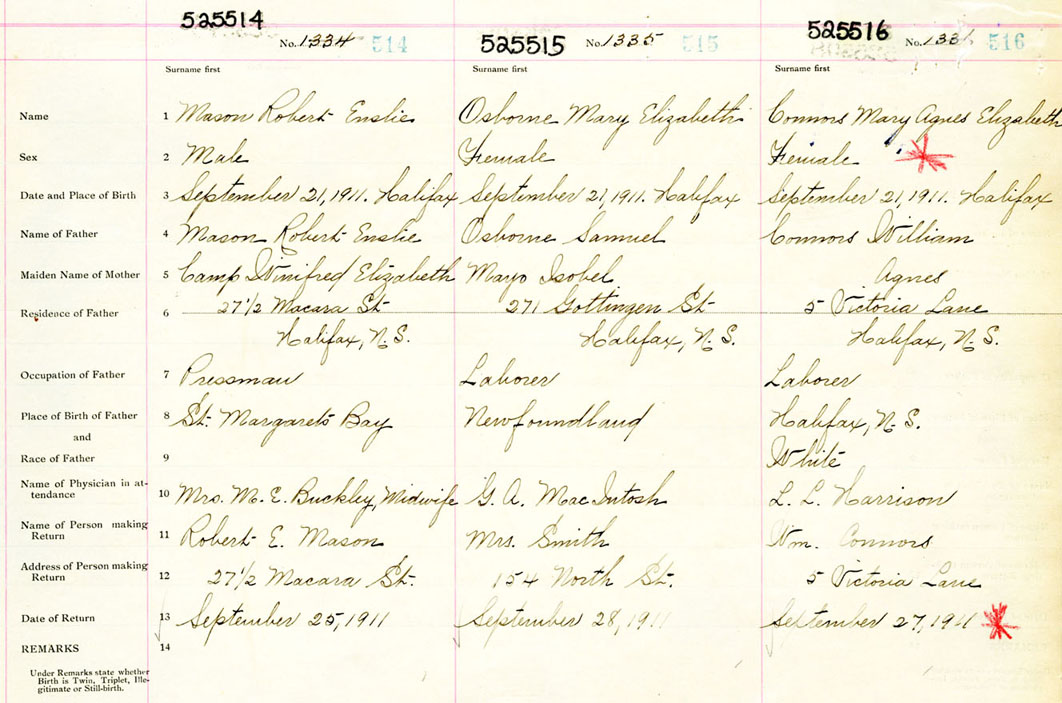 525514 525515 525516
No. 1334 514 No. 1335 515 No. 1336 516
Surname first Surname first Surname first
Name 1 Mason Robert Enslie Osborne Mary Elizabeth Connors Mary Agnes Elizabeth
Sex 2 Male Female Female
Date and Place of Birth 3 September 21, 1911. Halifax September 21, 1911. Halifax September 21, 1911. Halifax
Name of Father 4 Mason Robert Enslie Osborne Samuel Connors William
Maiden Name of Mother 5 Camp Winifred Elizabeth Mayo Isobel Agnes
Residence of Father 6 27 1/2 Macara St 271 Gottingen St 5 Victoria Lane
Halifax, N.S. Halifax, N.S. Halifax, N.S.
Occupation of Father 7 Pressman Laborer Laborer
Place of Birth of Father 8 St. Margarets Bay Newfoundland Halifax, N.S.
and
Race of Father 9 White
Name of Physician in at-
tendance 10 Mrs. M. E. Buckley, Midwife G. A. MacIntosh L. L. Harrison
Name of Person making
Return 11 Robert E. Mason Mrs. Smith Wm. Connors
Address of Person making
Return 12 27 1/2 Macara St. 154 North St. 5 Victoria Lane
Date of Return 13 September 25, 1911 September 28, 1911 September 27, 1911
REMARKS 14
Under Remarks state whether
Birth is Twin, Triplet, Ille-
gitimate or Still-birth.